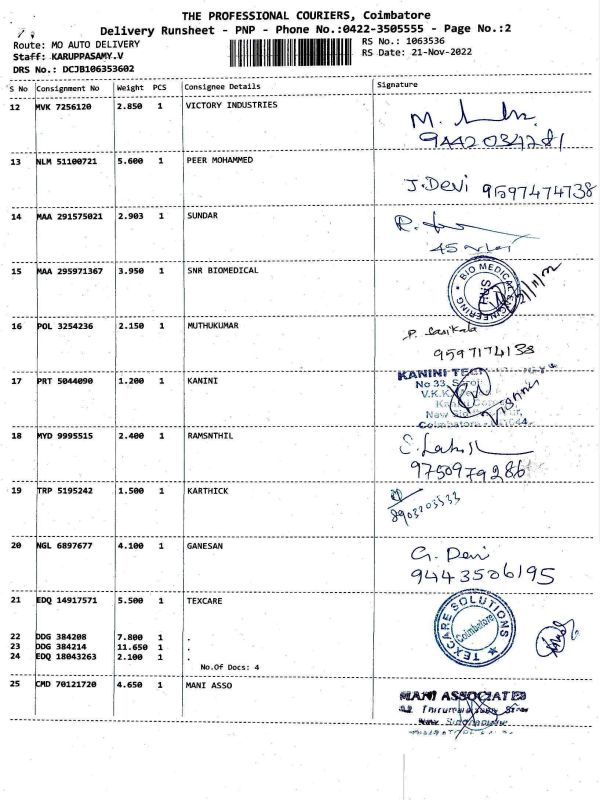 THE PROFESSIONAL COURIERS, Coimbatore
Delivery Runsheet - PNP - Phone No.:0422-3505555 - Page No.:2
Route: MO AUTO DELIVERY
RS No.: 1063536
Staff: KARUPPASAMY.V
RS Date: 21-Nov-2022
DRS No.: DCJB106353602
S No Consignment No Weight PCS Consignee Details Signature
12 MVK 7256120 2.850 1 VICTORY INDUSTRIES
9442034281
13 NLM 51100721 5.600 1 PEER MOHAMMED
J.Devi 9597474738
14 MAA 291575021 2.903 1 SUNDAR
15 MAA 295971367 3.950 1 SNR BIOMEDICAL
BIO MEDICAL ENGINEERING
16 POL 3254236 2.150 1 MUTHUKUMAR
P. Sasikala
9597174138
17 PRT 5044090 1.200 1 KANINI
KANINI
No 33,
V.K.K.
Coimbatore
18 MYD 9995515 2.400 1 RAMSNTHIL
9750979286
19 TRP 5195242 1.500 1 KARTHICK
8903203533
20 NGL 6897677 4.100 1 GANESAN
G. Devi
9443506195
21 EDQ 14917571 5.500 1 TEXCARE
TEXCARE SOLUTIONS
Coimbatore
22 DDG 384208 7.800 1 .
23 DDG 384214 11.650 1 .
24 EDQ 18043263 2.100 1 .
No.Of Docs: 4
25 CMD 70121720 4.650 1 MANI ASSO
MANI ASSOCIATES